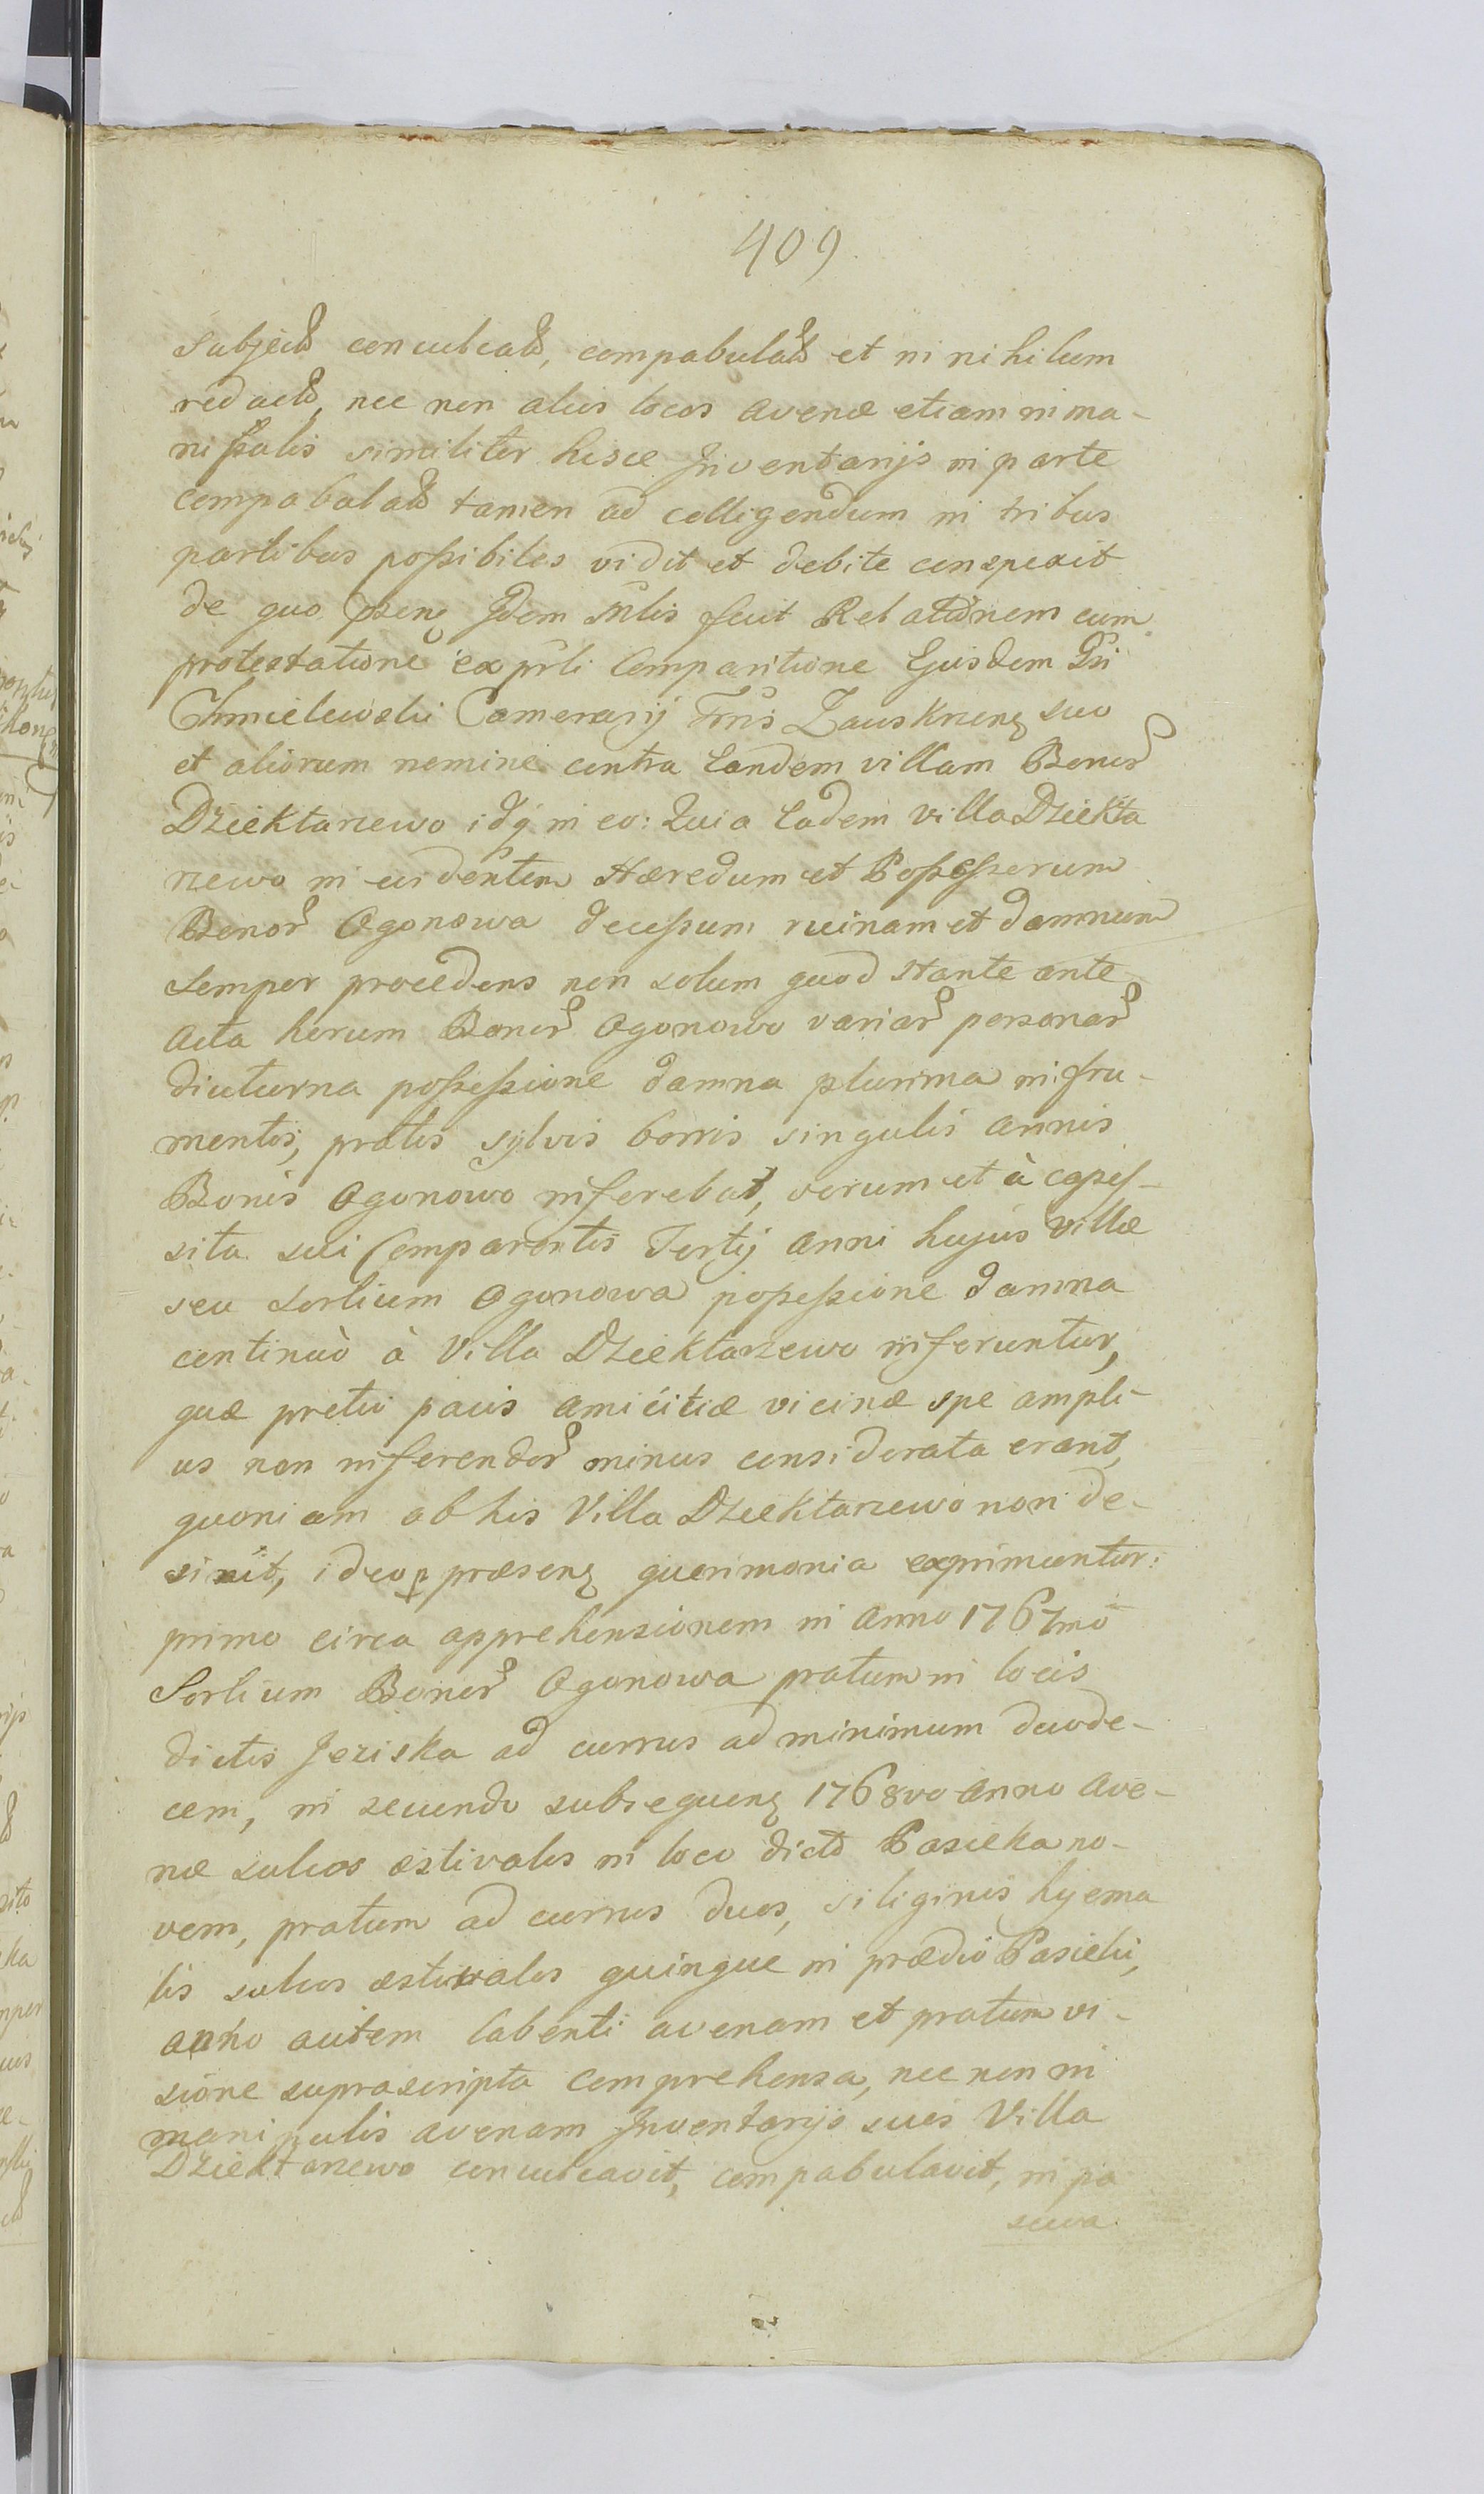 409
Subject conculcat, compabulat et in nihilum
redact, nec non alios locos avenæ etiam in ma-
nipulis similiter hisce Inventarijs in parte
compabulat tamen ad colligendum in tribus
partibus possibiles vidit et debite conspexit
de quo Idem Mlis fecit Relationem cum
protestatione ex prli Comparitione Ejusdem Gsi
Chmielewski Camerarij Trris Zauskrzens suo
et aliorum nemine contra Eandem villam Bonor
Dziektarzewo idq in eo: Quia Eadem villa Dziekta
rzewo in evidentem Hæredum et Possessorum
Bonor Ogonowa decessum ruinam et damnum
semper procedens non solum quod stante ante
acta horum Bonor Ogonowo variar personar
diuturna possessione damna plurima in fru-
mentis, pratis sylvis borris singulis annis
Bonis Ogonowo inferebat, verum et à capes-
sita sui Comparentis Tertij anni hujus villæ
seu Sortium Ogonowa possessione damna
continuò à Villa Dziektarzewo inferuntur,
quæ pretii pacis amicitiæ vicinæ spe ampli-
us non inferendor minus considerata erant,
quoniam ab his Villa Dziektarzewo non de-
sinit, ideo p præsens querimonia exprimuntur:
primo circa apprehensionem in Anno 1767mo
Sortium Bonor Ogonowa pratum in locis
dictis Jeziska ad currus ad minimum duode-
cem, in secundo subsequens 1768vo anno ave-
næ sulcos æstivales in loco dicto Pasieka no-
vem, pratum ad currus duos, siliginis hyema
lis sulcos æstivales quinque in prædio Pasieki,
anno autem labenti avenam et pratum vi-
sione suprascripta comprehensa, nec non in
manipulis avenam Inventarijs suis Villa
Dziektarzewo conculcavit, compabulavit, in pa
scuva